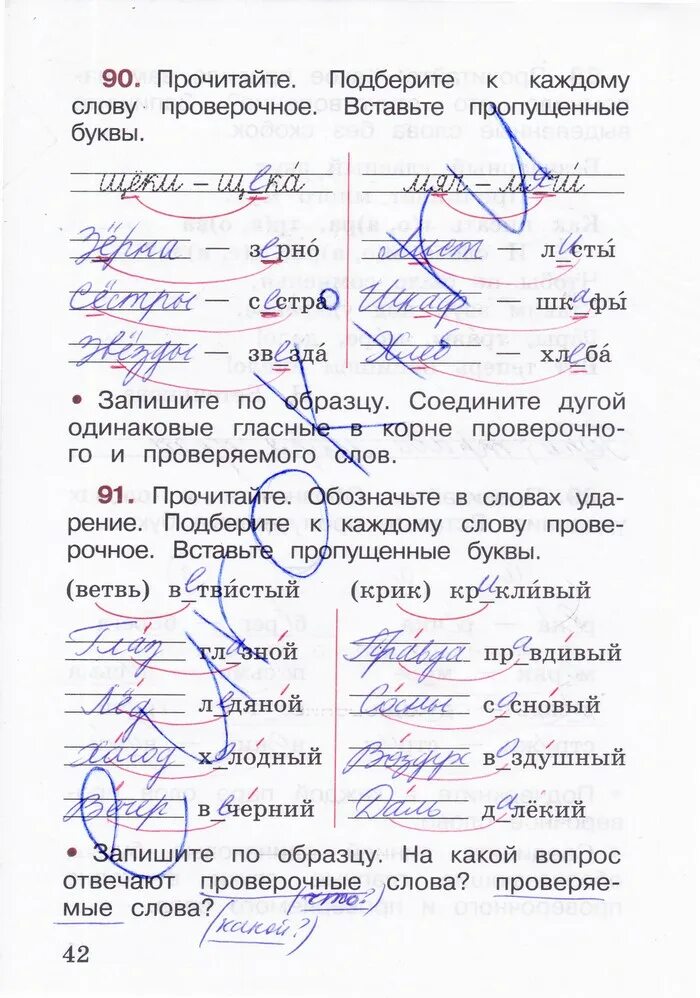 90. Прочитайте. Подберите к каждому
слову проверочное. Вставьте пропущенные
буквы.
щёки – щека мяч – мячи́
Зёрна — зерно́ Лист — листы́
Сёстры — сестра́ Шкаф — шкафы́
Звёзды — звезда́ Хлеб — хлеба́
• Запишите по образцу. Соедините дугой
одинаковые гласные в корне проверочно-
го и проверяемого слов.
91. Прочитайте. Обозначьте в словах уда-
рение. Подберите к каждому слову прове-
рочное. Вставьте пропущенные буквы.
(ветвь) ветви́стый (крик) крикли́вый
Глаз глазной Правда правдивый
Лёд ледяной Сосны сосновый
Холод холодный Воздух воздушный
Вечер вечерний Даль далёкий
• Запишите по образцу. На какой вопрос
отвечают проверочные слова? проверяе-
(что?)
мые слова?
(какой?)
42